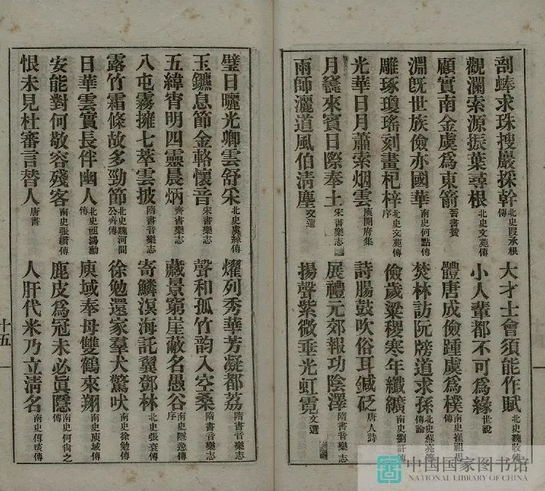 剖蜯求珠搜巖採幹北史段承根傳
大才士會須能作賦北史魏收傳
觀瀾索源振葉尋根北史文苑傳
小人輩都不可為緣世說
顧實南金虞為東箭晉書贊
體唐成儉踵虞為樸
淵旣世族儉亦國華南史何點傳
焚林訪阮牓道求孫
雕琢瓊瑤刻畫杞梓北史文苑傳序
儉歲粱稷寒年纖纊南史劉訏傳
光華日月蕭索烟雲
詩腸鼓吹俗耳鍼砭唐人詩
月竁來賓日際奉土宋書樂志
展禮元郊報功陰澤隋書音樂志
雨師灑道風伯清塵文選
揚聲紫微垂光虹霓文選
璧日曬光卿雲舒采
燦列秀華芳凝都荔隋書音樂志
玉鑣息節金輅懷音宋書樂志
聲和孤竹韵入空桑隋書音樂志
五緯宵明四靈晨炳齊書樂志
藏景窮崖蔽名愚谷南史隱逸傳序
八屯霧擁七萃雲披隋書音樂志
寄鱗溟海託翼鄧林北史張袞傳
露竹霜條故多勁節北史魏河間公齊傳
徐勉還家羣犬驚吠南史徐勉傳
日華雲實長伴幽人
庾域奉母雙鶴來翔南史庾域傳
安能對何敬容殘客南史張纘傳
鹿皮為冠未必眞隱南史何尚之傳
恨未見杜審言替人唐書
人肝代米乃立清名南史傅琰傳
十五
中国国家图书馆
NATIONAL LIBRARY OF CHINA